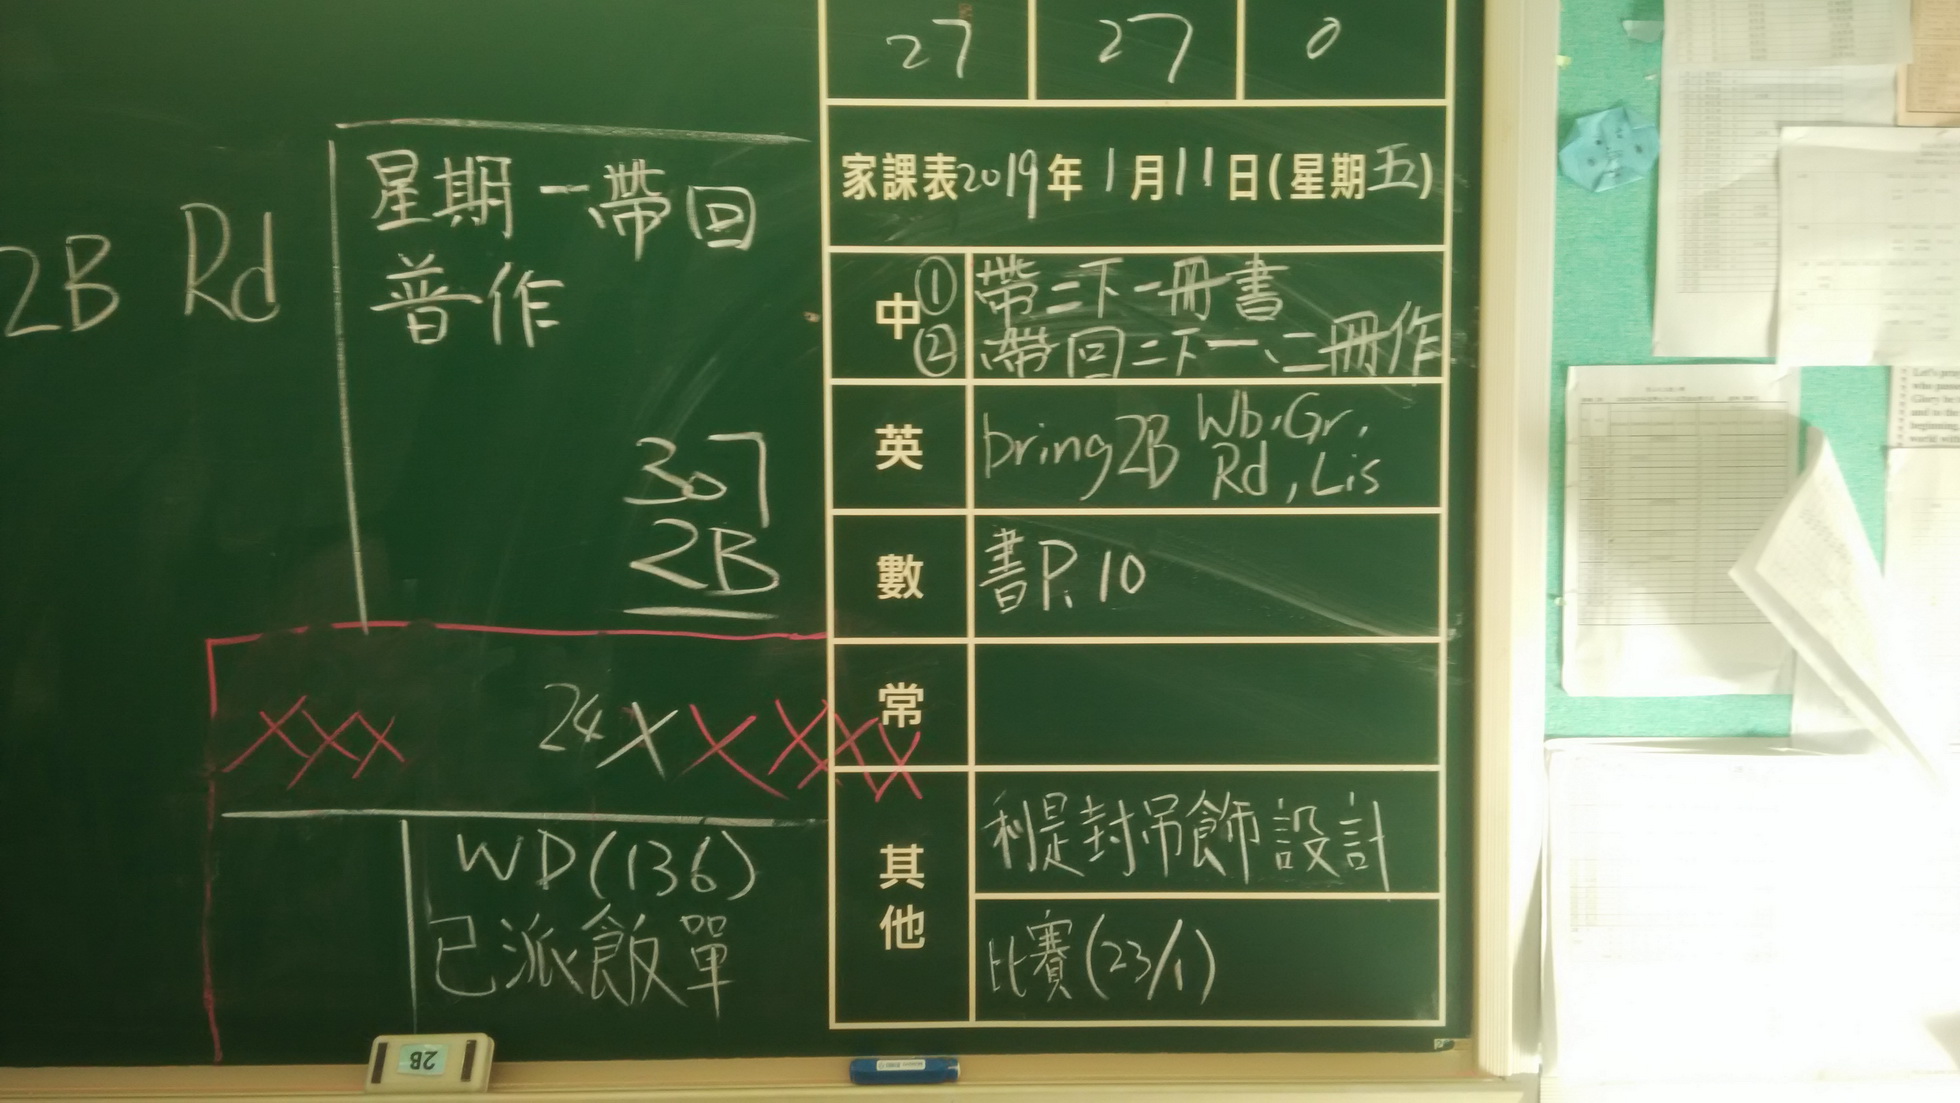 2B Rd
星期一帶回
普作
307
2B
24
WD(136)
已派飯單
27 27 0
家課表2019年1月11日(星期五)
中 ①帶二下一冊書
②帶回二下一、二冊作
英 bring 2B Wb, Gr,
Rd, Lis
數 書P.10
常
其他 利是封吊飾設計
比賽(23/1)
2B